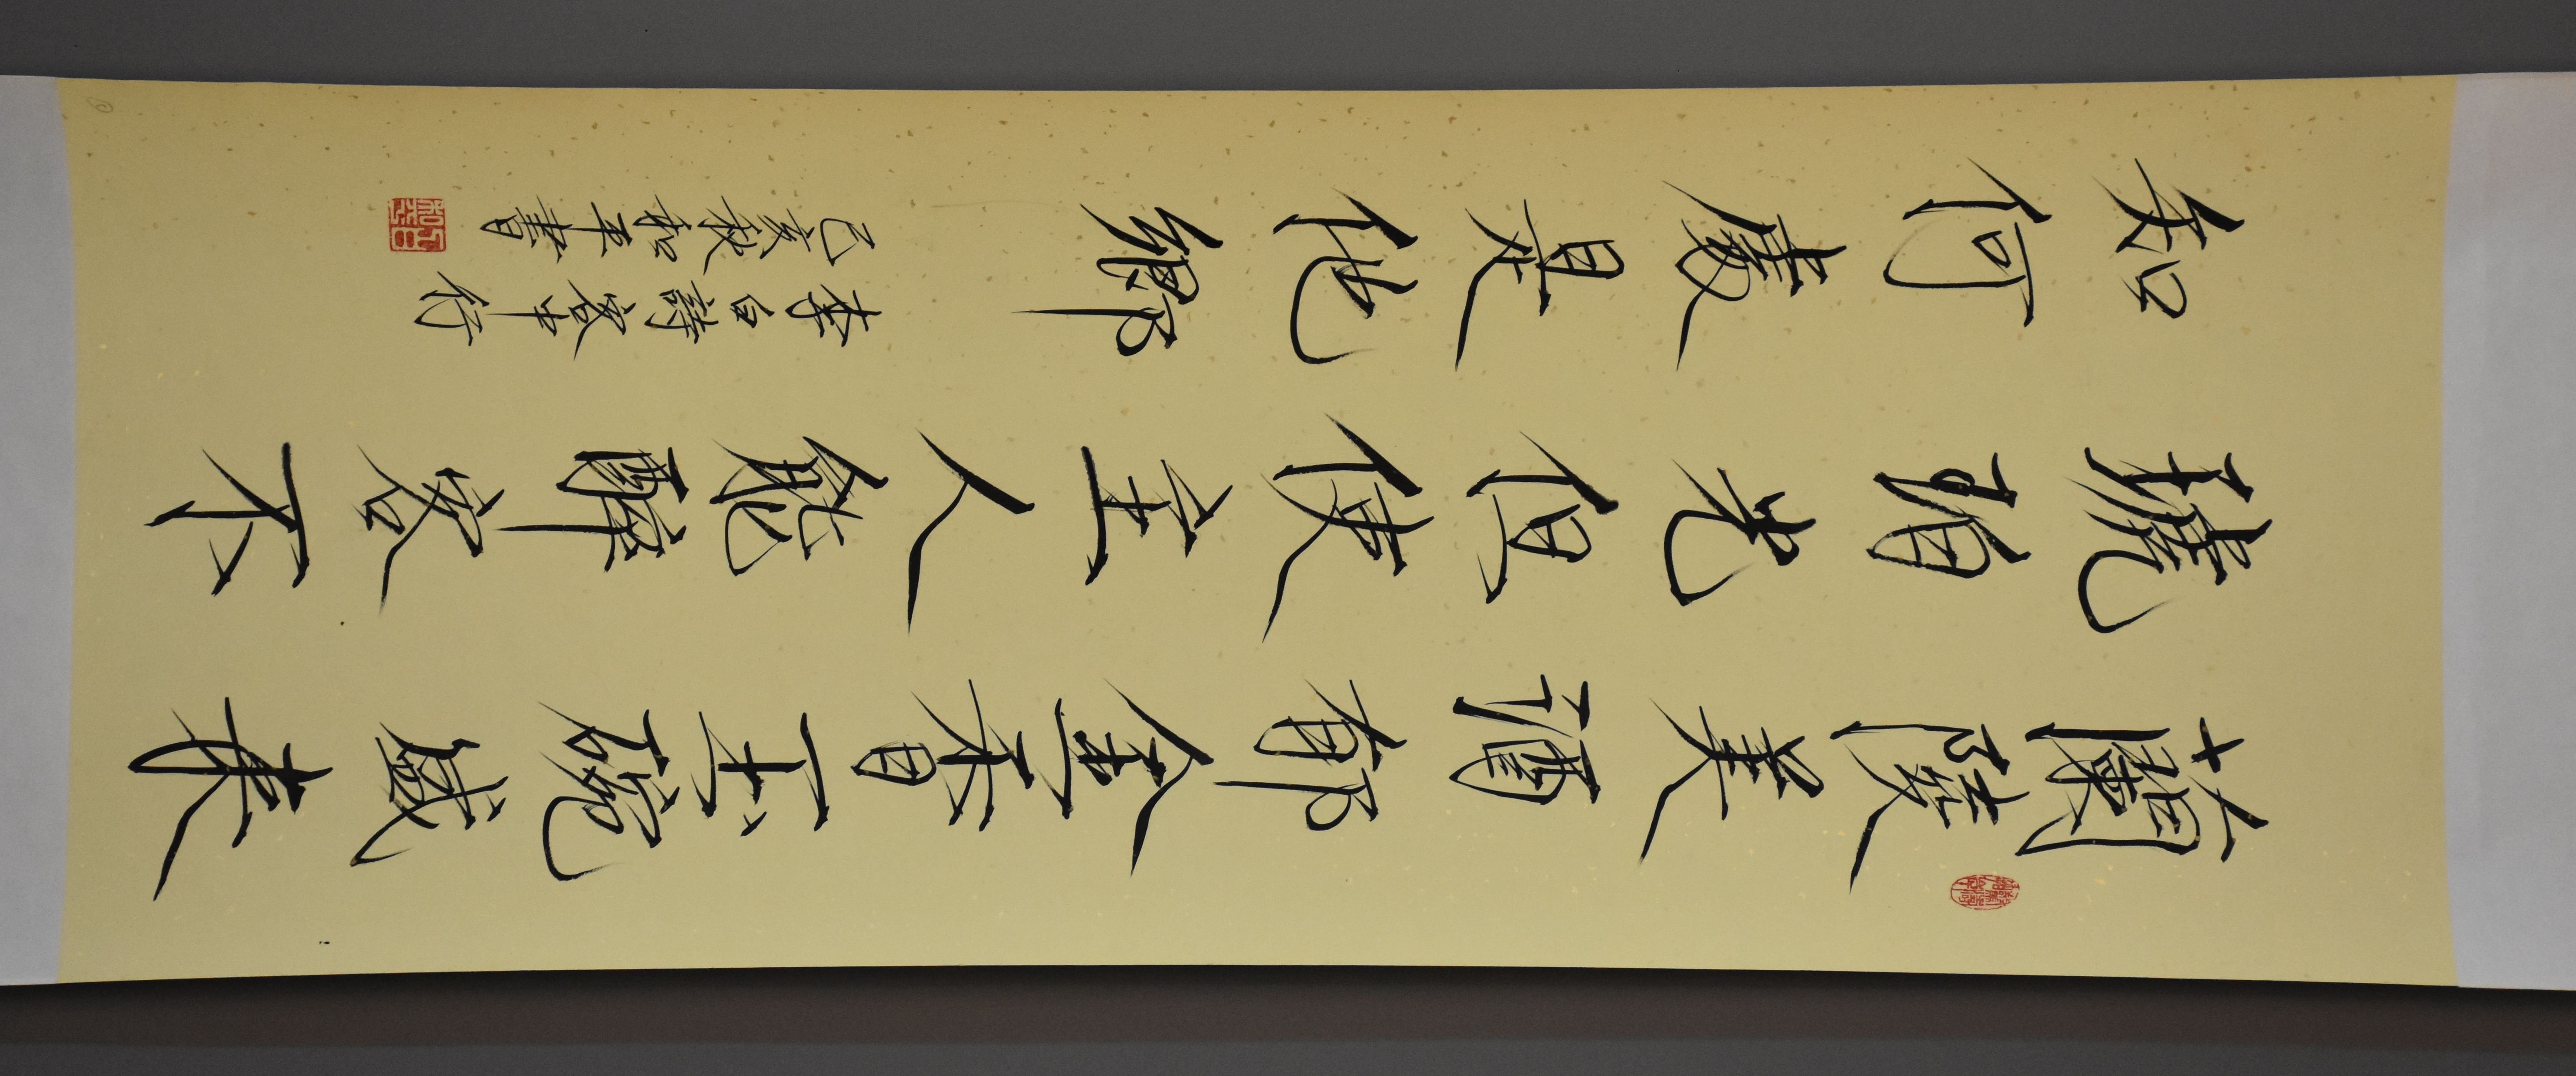 蘭陵美酒郁金香玉碗盛來
琥珀光但使主人能醉客不
知何處是他鄉
李白詩客中行
己亥秋和平書